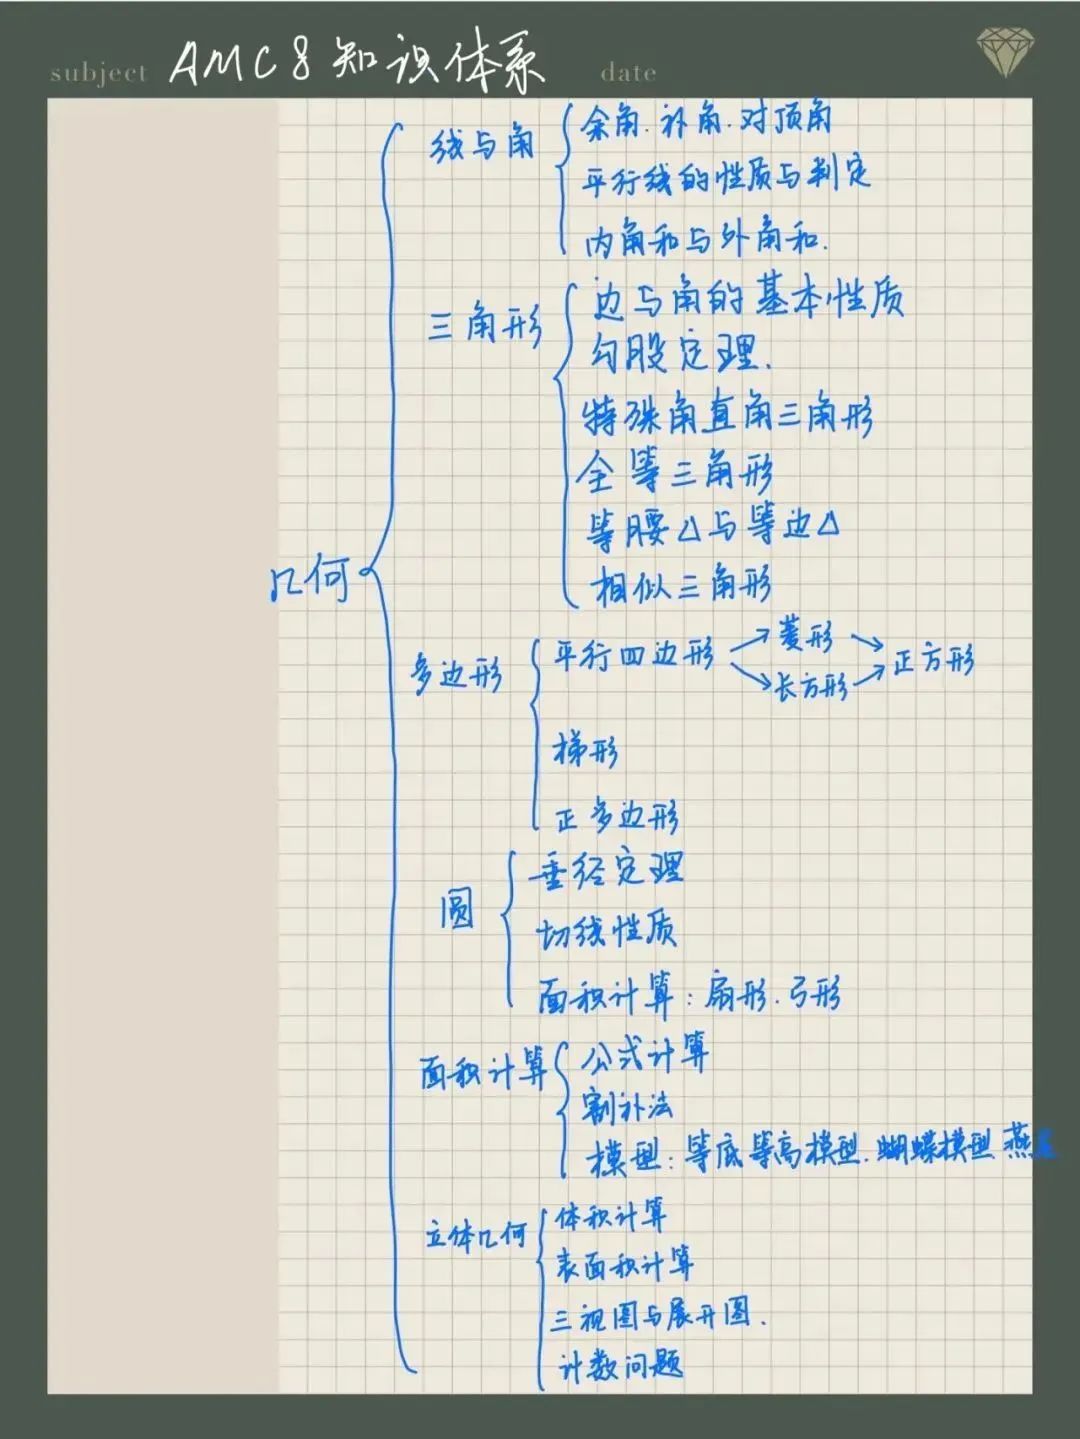 subject AMC8知识体系 date
几何
线与角
余角.补角.对顶角
平行线的性质与判定
内角和与外角和.
三角形
边与角的基本性质
勾股定理.
特殊角直角三角形
全等三角形
等腰△与等边△
相似三角形
多边形
平行四边形 → 菱形 → 正方形
→ 长方形 →
梯形
正多边形
圆
垂径定理
切线性质
面积计算:扇形.弓形
面积计算
公式计算
割补法
模型:等底等高模型.蝴蝶模型.燕
立体几何
体积计算
表面积计算
三视图与展开图.
计数问题